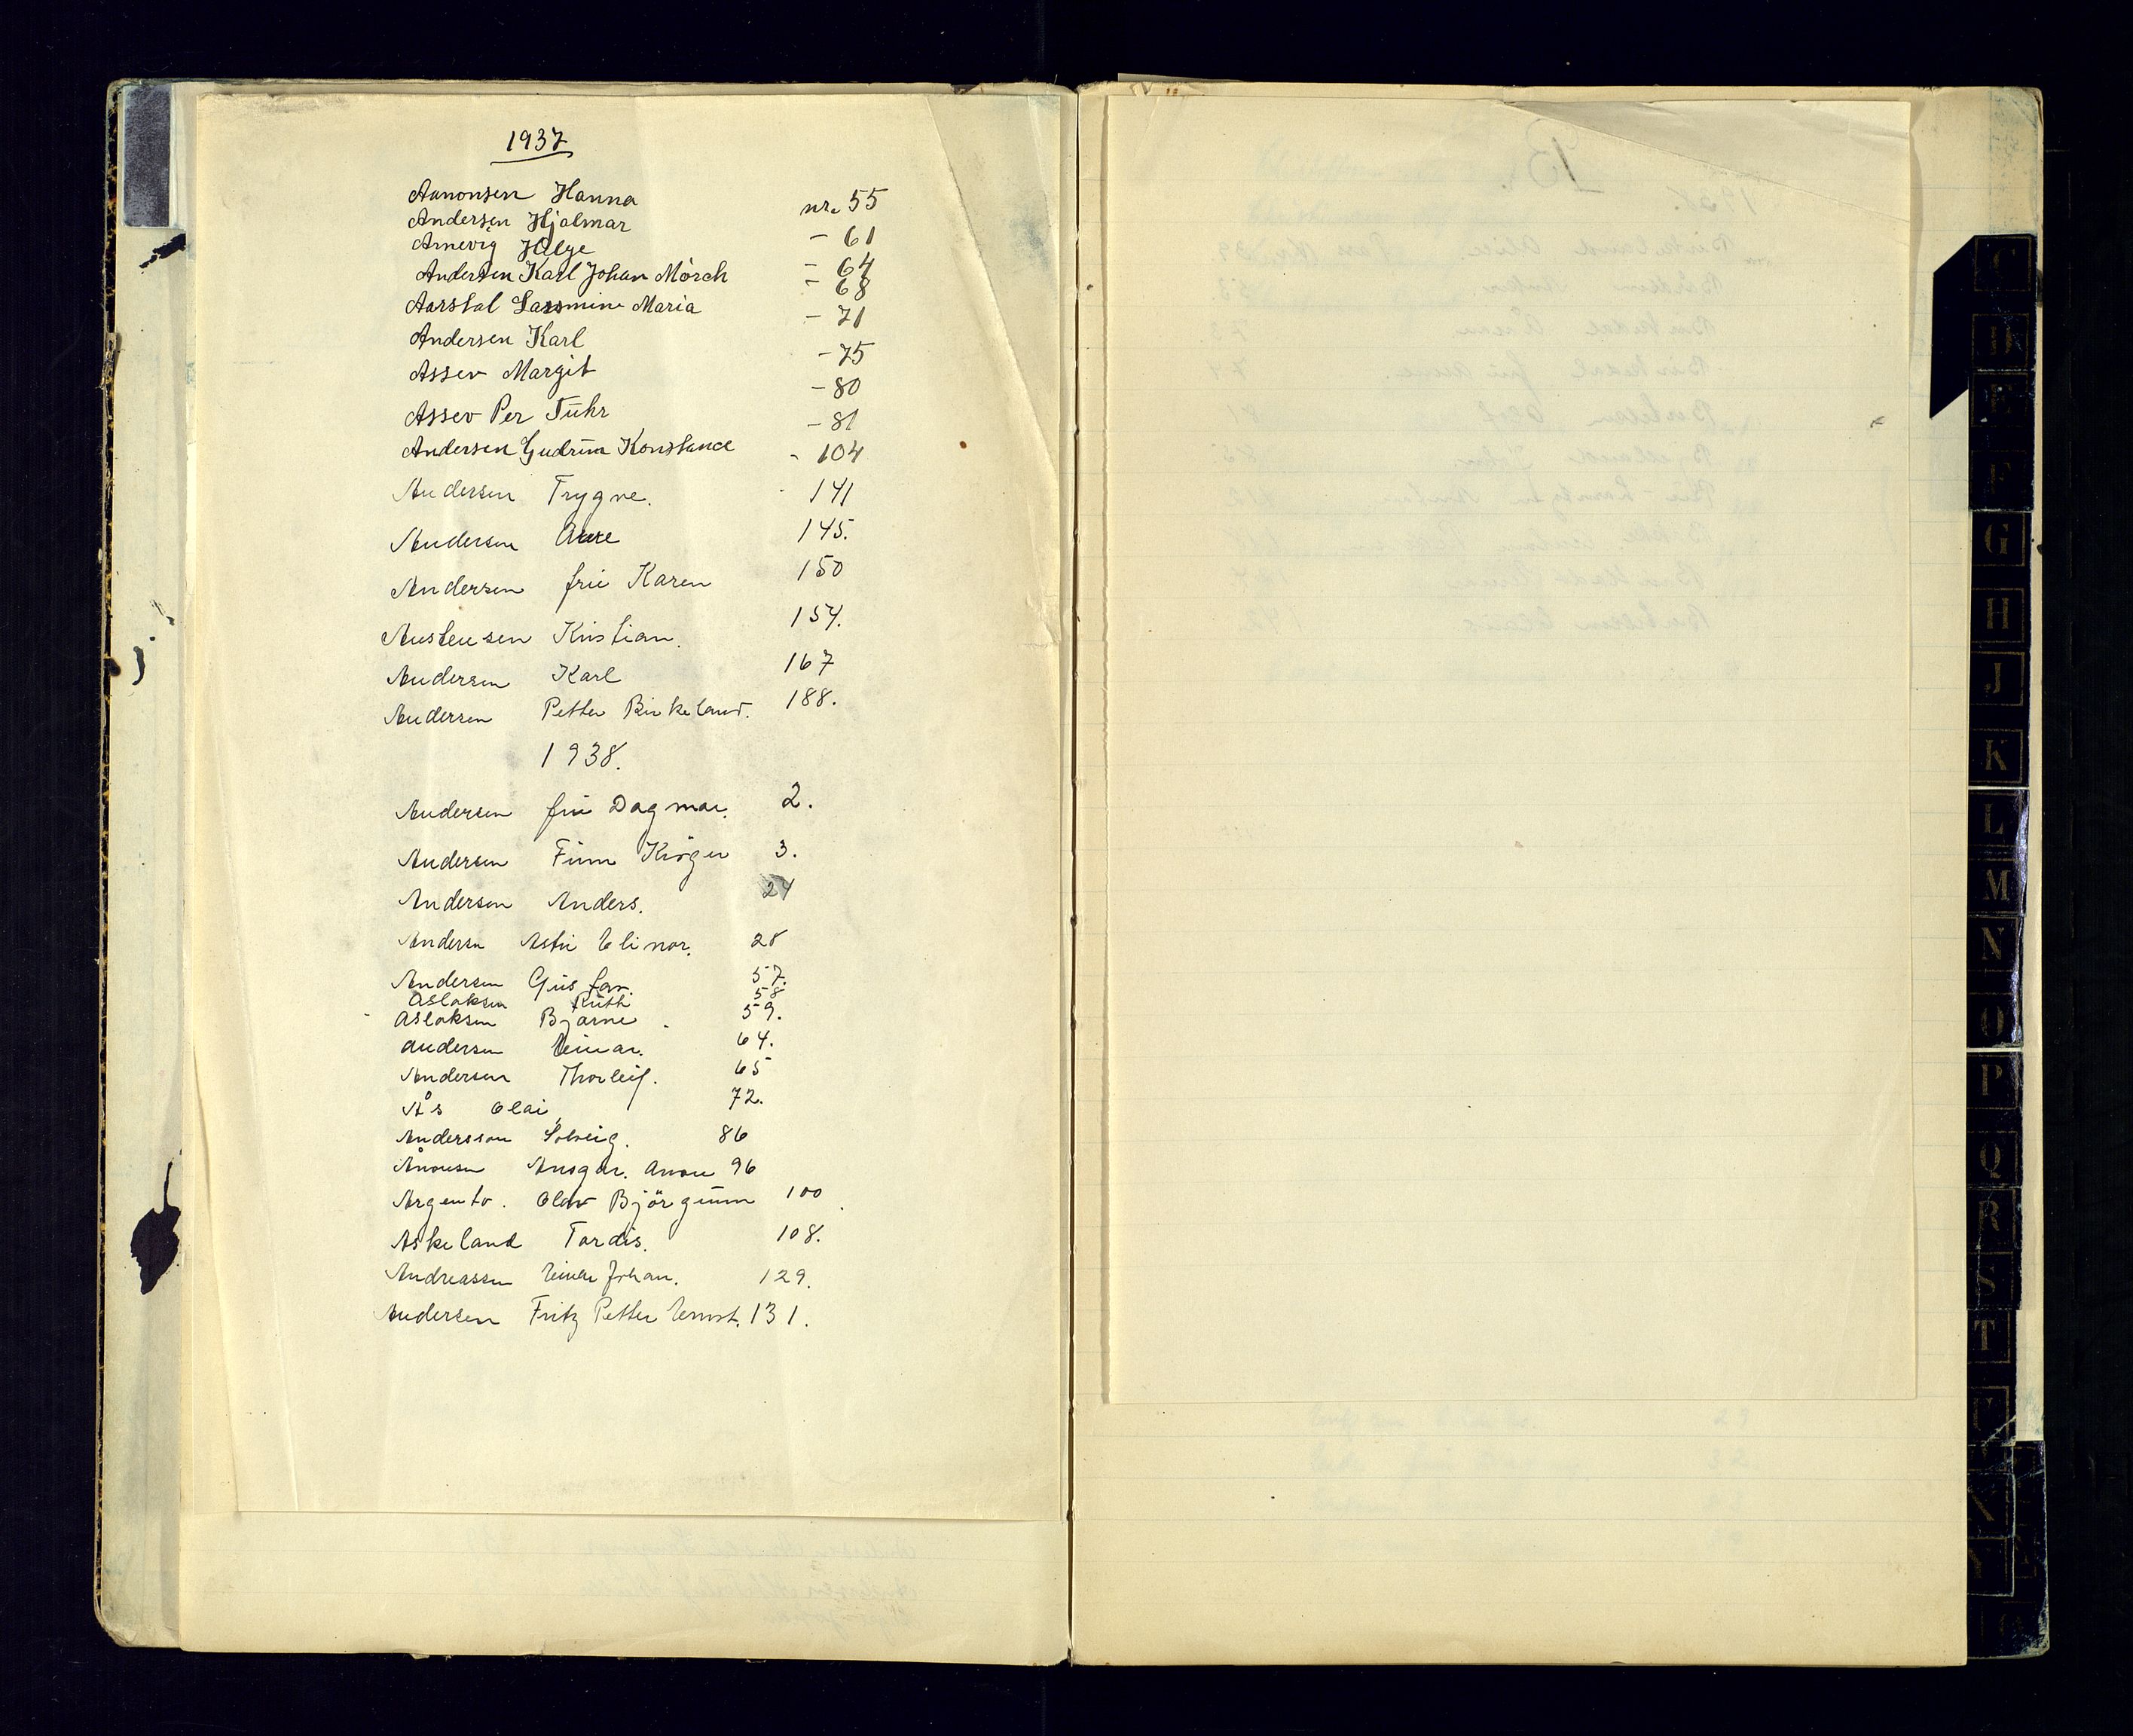 1937
Aanonsen Hanna nr. 55
Andersen Hjalmar - 61
Arnevig Helge - 64
Andersen Karl Johan Mörch - 68
Aarstal Lassmine Maria - 71
Andersen Karl - 75
Assev Margit - 80
Assev Per Tuhr - 81
Andersen Gudrun Konstance - 104
Andersen Trygve. 141
Andersen Aase 145.
Andersen fru Karen 150
Austensen Kristian. 154.
Andersen Karl 167
Andersen Petter Birkeland. 188.
1938.
Andersen fru Dagmar. 2.
Andersen Finn Kröger 3.
Andersen Anders. 24
Andersn Astri Elinor. 28
Andersen Gustav. 57.
Aslaksen Ruth 58
Aslaksen Bjarne. 59.
Andersen Einar. 64.
Andersen Thorleif. 65
Ås Olai 72.
Andersson Solveig. 86
Ånonsen Ansgar. Anon 96
Argento. Olav Björgum 100
Askeland Tordis. 108.
Andreassen Einar Johan. 129.
Andersen Fritz Petter Ernst. 131.
C
D
E
F
G
H
J
K
L
M
N
O
P
Q
R
S
T